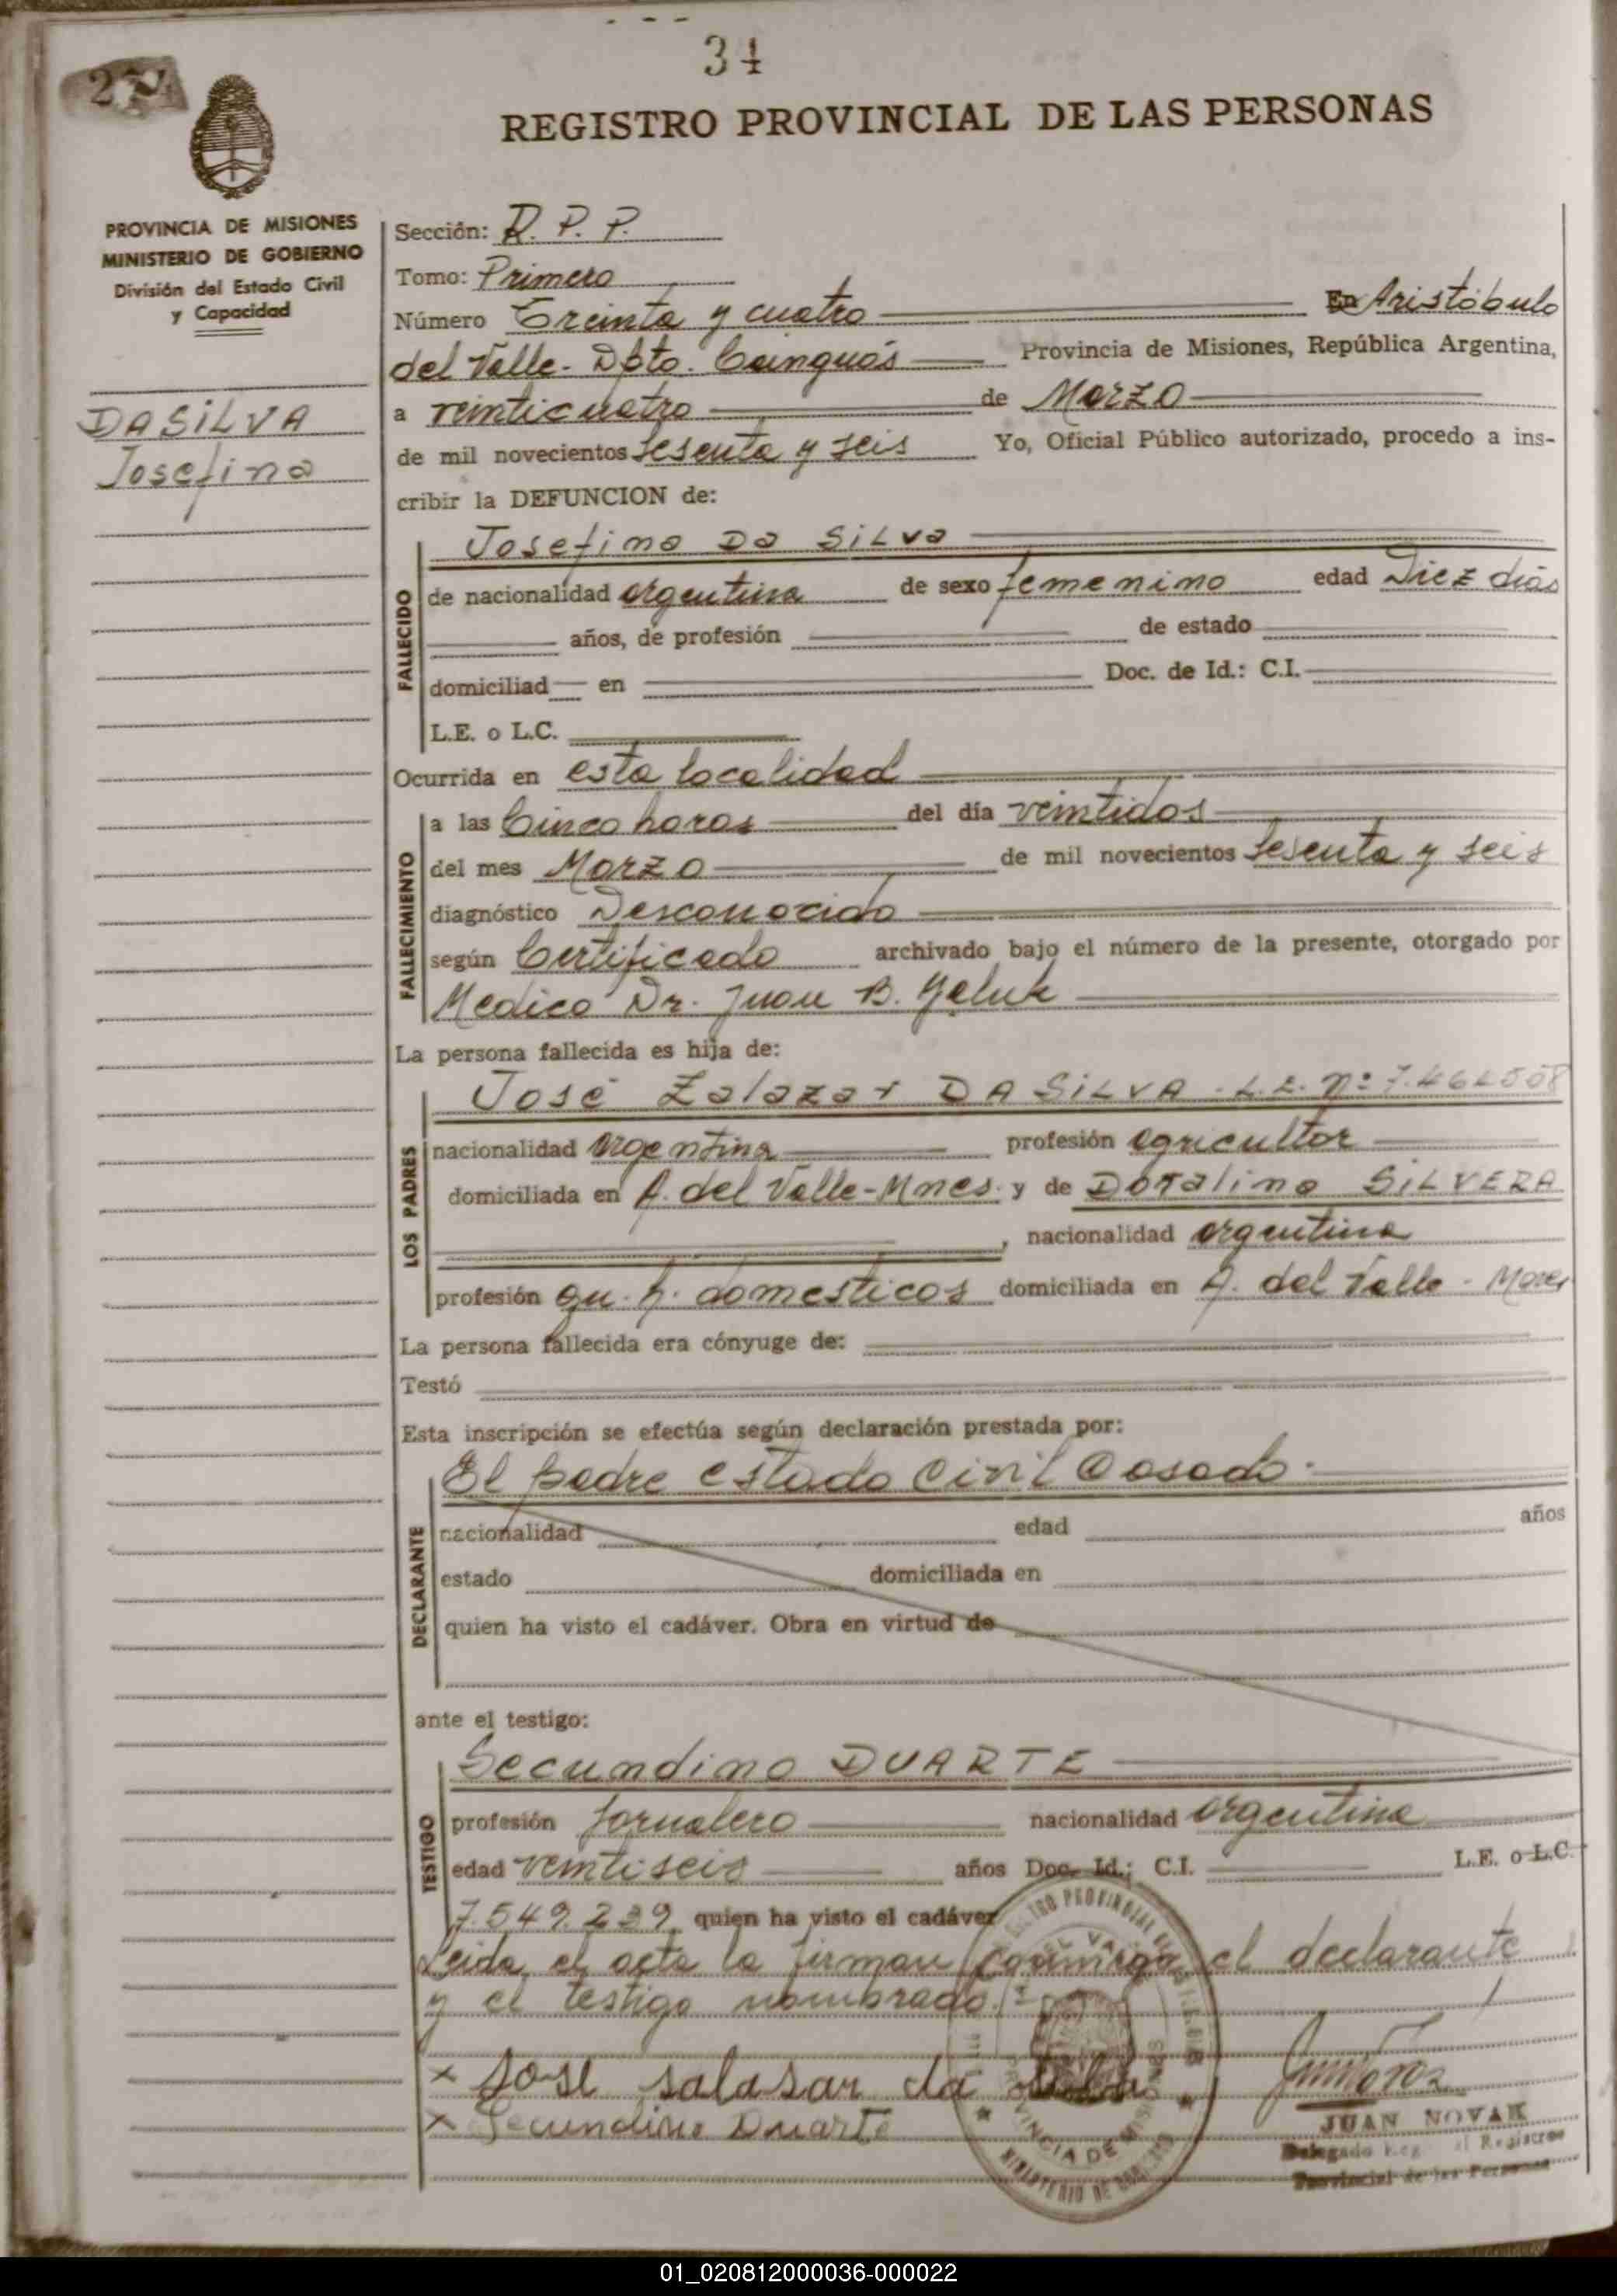 34
REGISTRO PROVINCIAL DE LAS PERSONAS
PROVINCIA DE MISIONES
MINISTERIO DE GOBIERNO
División del Estado Civil
y Capacidad
DA SILVA
Josefina
Sección: R. P. P.
Tomo: Primero
Número Treinta y cuatro En Aristóbulo
del Valle - Dpto. Cainguás Provincia de Misiones, República Argentina,
a veinticuatro de Marzo
de mil novecientos sesenta y seis Yo, Oficial Público autorizado, procedo a ins-
cribir la DEFUNCION de:
FALLECIDO
Josefina Da Silva
de nacionalidad argentina de sexo femenino edad Diez días
años, de profesión de estado
domiciliad en Doc. de Id.: C.I.
L.E. o L.C.
Ocurrida en esta localidad
FALLECIMIENTO
a las Cinco horas del día veintidos
del mes Marzo de mil novecientos sesenta y seis
diagnóstico Desconocido
según Certificado archivado bajo el número de la presente, otorgado por
Medico Dr. Juan B.
La persona fallecida es hija de:
LOS PADRES
José Zalazar DA SILVA - L.E. nº
nacionalidad argentina profesión agricultor
domiciliada en A. del Valle - Mnes. y de Doralina SILVERA
, nacionalidad argentina
profesión qu. h. domesticos domiciliada en A. del Valle - Mnes
La persona fallecida era cónyuge de:
Testó
Esta inscripción se efectúa según declaración prestada por:
DECLARANTE
El padre estado civil Casado.
nacionalidad edad años
estado domiciliada en
quien ha visto el cadáver. Obra en virtud de
ante el testigo:
TESTIGO
Secundino DUARTE
profesión Jornalero nacionalidad argentina
edad veintiseis años Doc. Id.: C.I. L.E. o L.C.
7.549.239 quien ha visto el cadáver
Leida el acta la firman conmigo el declarante
y el testigo nombrado.
x Jose salasar da silva
x Secundino Duarte
JUAN NOVAK
Delegado Reg
Provincial de las Personas
PROVINCIA DE MISIONES
MINISTERIO DE GOBIERNO
01_020812000036-000022